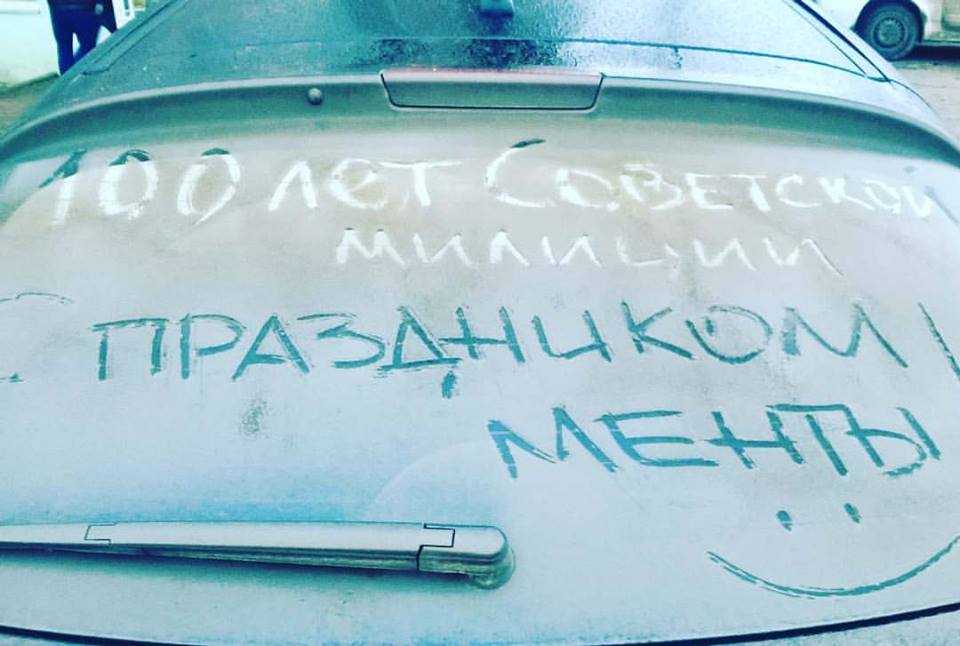 100 лет Советской
милиции
С ПРАЗДНИКОМ!
МЕНТЫ